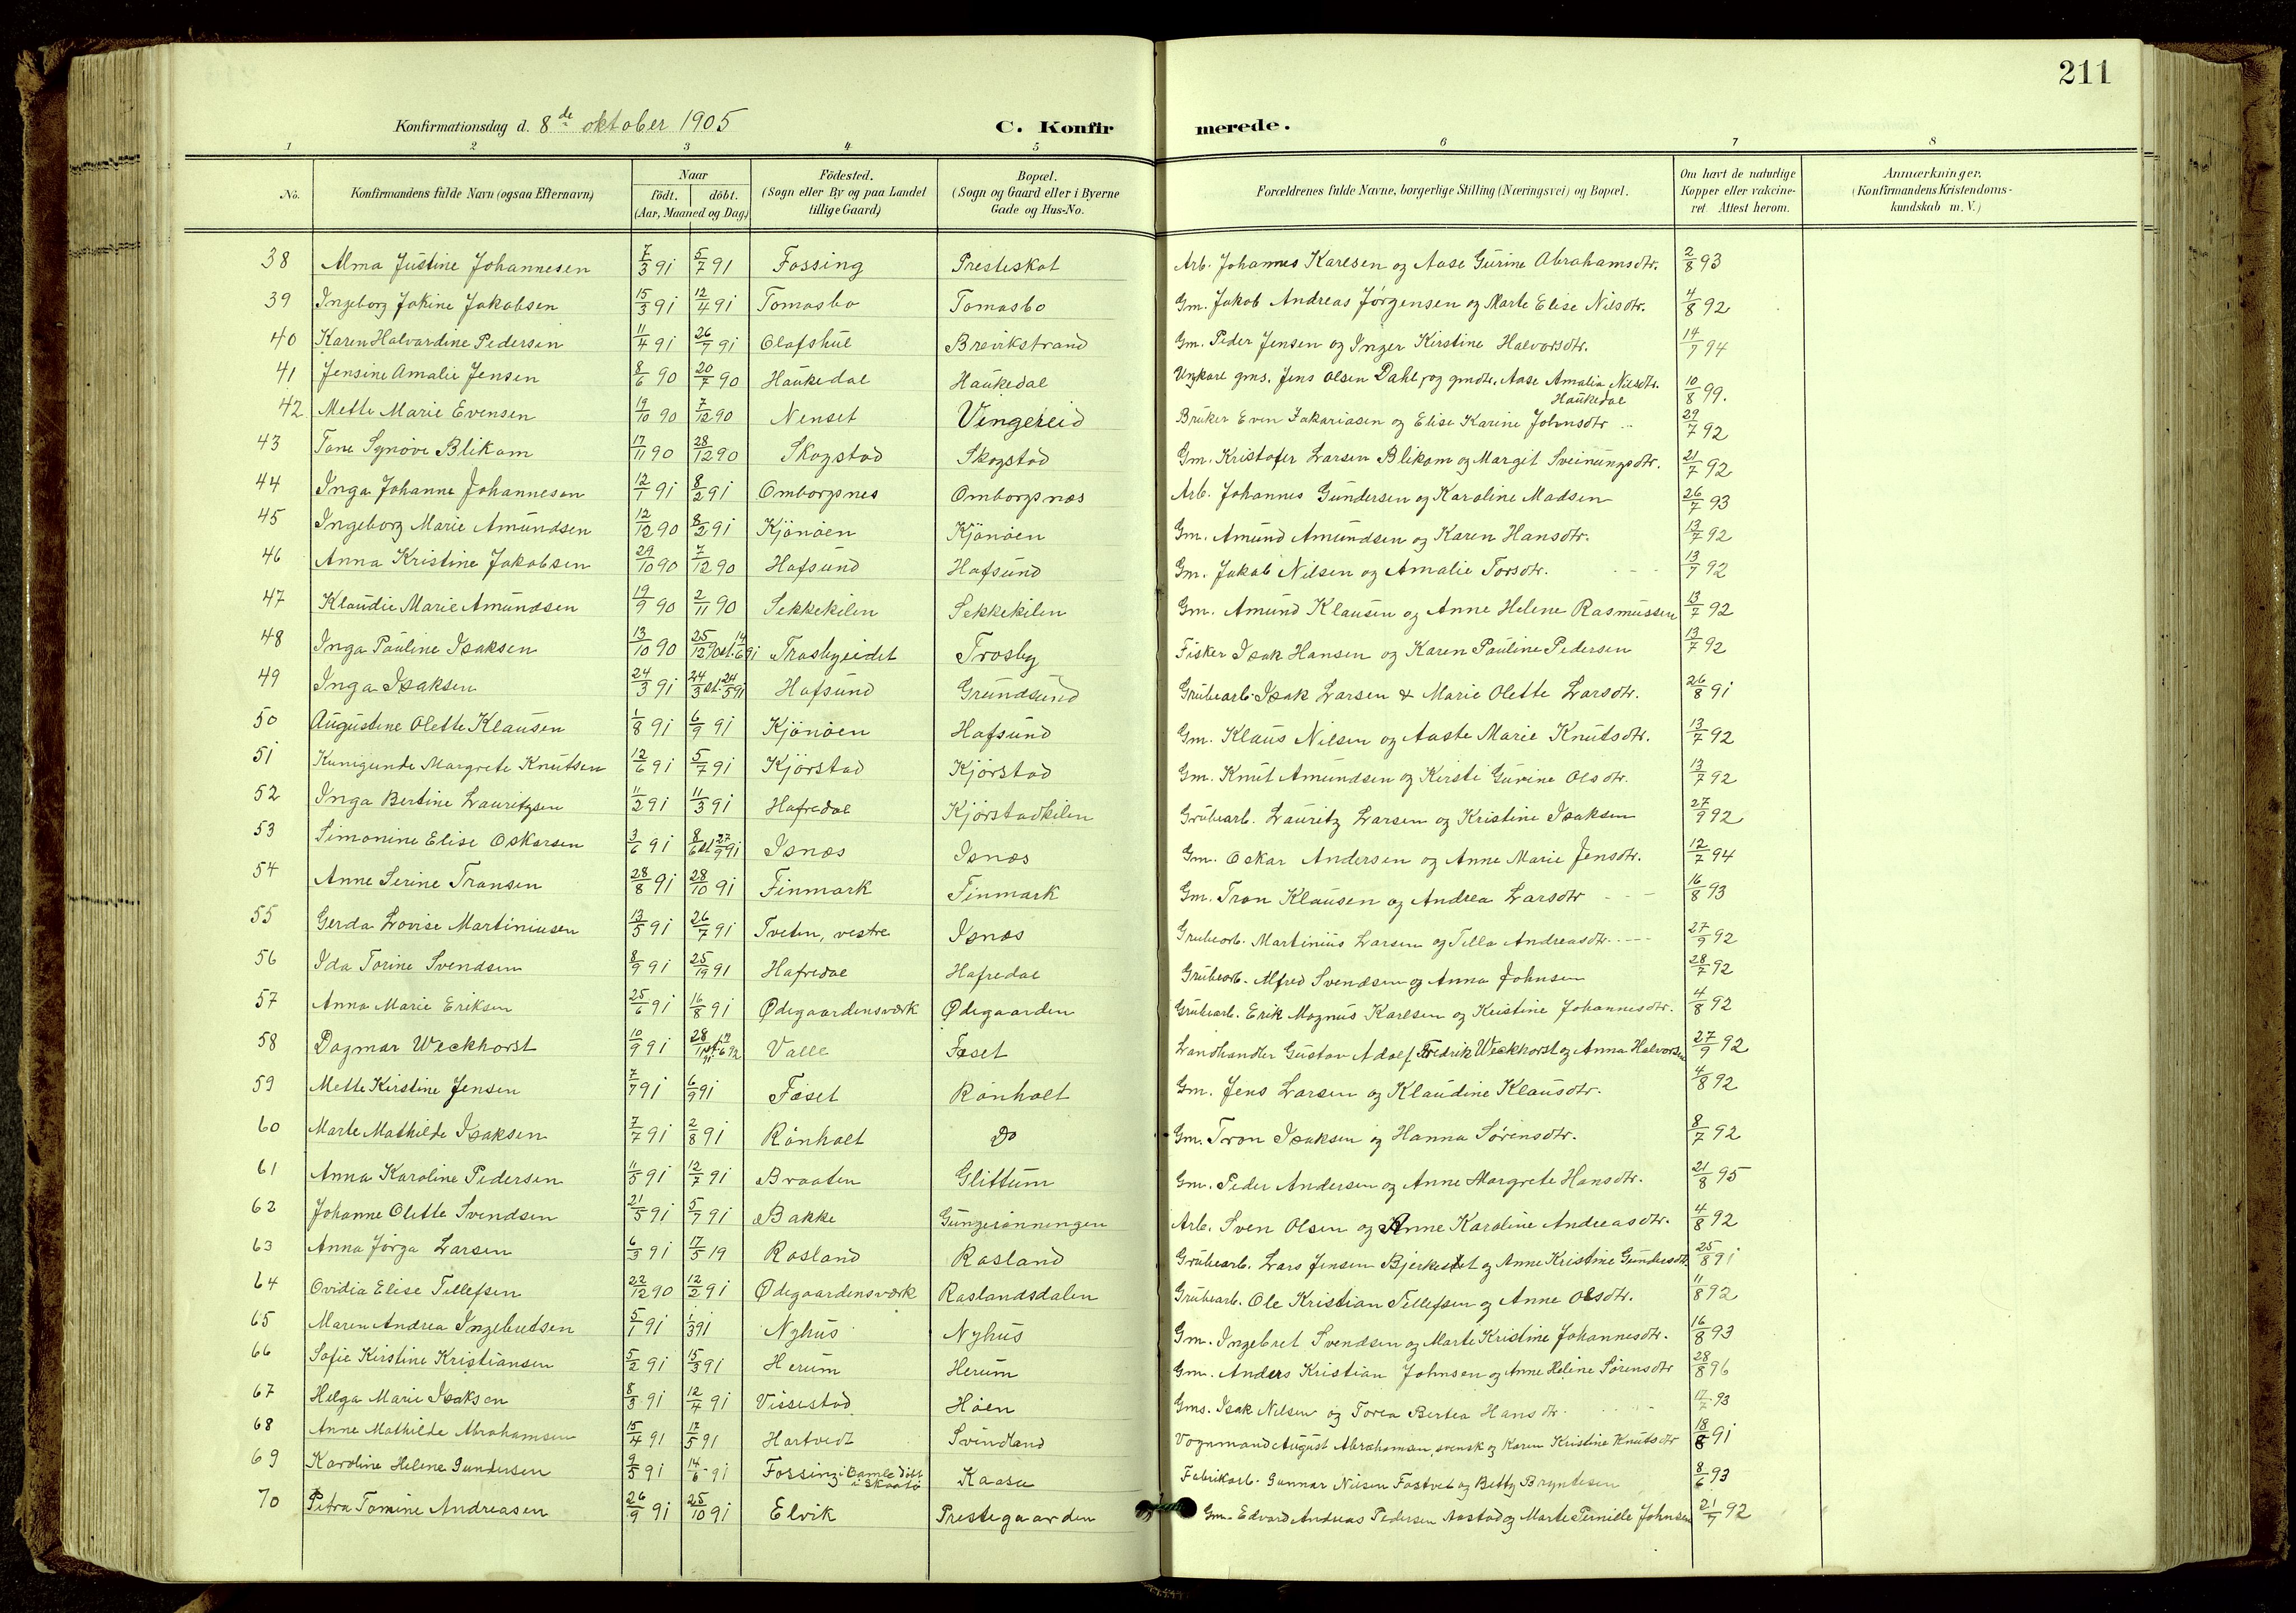 211
Konfirmationsdag d. 8de oktober 1905 C. Konfirmerede.
1 2 3 4 5 6 7 8
No. Konfirmandens fulde Navn (ogsaa Efternavn) Naar født. døbt. (Aar, Maaned og Dag) Fødested. (Sogn eller By og paa Landet tillige Gaard) Bopæl. (Sogn og Gaard eller i Byerne Gade og Hus-No. Forældrenes fulde Navne, borgerlige Stilling (Næringsvei) og Bopæl. Om havt de naturlige Kopper eller vakcineret Attest herom. Anmærkninger. (Konfirmandens Kristendomskundskab m. V.)
38 Alma Justine Johannesen 7/3 91 5/7 91 Fossing Presteskot Arb. Johannes Karlsen og Aase Gurine Abrahamsdtr. 2/8 93
39 Ingeborg Jokine Jakobsen 15/3 91 12/4 91 Tomasbo Tomasbo Gm. Jakob Andreas Jørgensen og Marte Elise Nilsdtr. 4/8 92
40 Karen Halvardine Pedersen 11/4 91 26/7 91 Olafshul Brevikstrand Gm. Peder Jensen og Inger Kirstine Halvorsdtr. 14/7 94
41 Jensine Amalie Jensen 8/6 90 20/7 90 Haukedal Haukedal Ungkarl gms. Jens Olsen Dahl, og gmdtr. Aase Amalia Nilsdtr. Haukedal 10/8 99.
42 Mette Marie Evensen 19/10 90 7/12 90 Nenset Vingereid Bruker Even Zakariasen og Elise Karine Johnsdtr 29/7 92
43 Tone Synøve Blikom 17/11 90 28/12 90 Skogstad Skogstad Gm. Kristofer Larsen Blikom og Margit Sveinungsdtr. 21/7 92
44 Inga Johanne Johannesen 12/1 91 8/2 91 Omborgsnes Omborgsnæs Arb. Johannes Gundersen og Karoline Madsen 26/7 93
45 Ingeborg Marie Amundsen 12/12 90 8/2 91 Kjønøen Kjønøen Gm. Amund Amundsen og Karen Hansdtr. 13/7 92
46 Anna Kristine Jakobsen 29/10 90 7/12 90 Hafsund Hafsund Gm. Jakob Nilsen og Amalie Torsdtr. 13/7 92
47 Klaudie Marie Amundsen 19/9 90 2/11 90 Sekkekilen Sekkekilen Gm. Amund Klausen og Anne Helene Rasmussen 13/7 92
48 Inga Pauline Isaksen 13/10 90 25/12 90 st. 14/6 91 Trosbyeidet Trosby Fisker Isak Hansen og Karen Pauline Pedersen 13/7 92
49 Inga Isaksen 24/3 91 24/3 st. 24/5 91 Hafsund Grundsund Grubearb. Isak Larsen & Marie Olette Larsdtr. 26/8 91
50 Augustine Olette Klausen 1/8 91 6/9 91 Kjønøen Hafsund Gm. Klaus Nilsen og Aaste Marie Knutsdtr. 13/7 92
51 Kunigunde Margrete Knutsen 12/6 91 5/7 91 Kjørstad Kjørstad Gm. Knut Amundsen og Kirsti Gurine Olsdtr. 13/7 92
52 Inga Bertine Lauritzsen 11/2 91 11/3 91 Hafredal Kjørstadkilen Grubearb. Lauritz Larsen og Kristine Isaksen 27/9 92
53 Simonine Elise Oskarsen 3/6 91 8/6 st. 27/9 91 Isnæs Isnæs Gm. Oskar Andersen og Anne Marie Jensdtr. 12/7 94
54 Anne Serine Tronsen 28/8 91 28/10 91 Finmark Finmark Gm. Tron Klausen og Andrea Larsdtr 16/8 93
55 Gerda Lovise Martiniusen 13/5 91 26/7 91 Tveten, vestre Isnæs Grubearb. Martinius Larsen og Tilla Andreasdtr. 27/9 92
56 Ida Torine Svendsen 8/9 91 25/19 91 Hafredal Hafredal Grubearb. Alfred Svendsen og Anna Johnsen 28/7 92
57 Anna Marie Eriksen 25/6 91 16/8 91 Ødegaardensværk Ødegaarden Grubearb. Erik Magnus Karlsen og Kristine Johannesdtr. 4/8 92
58 Dagmar Weckhorst 10/9 91 Valle Føset Landhandler Gustav Adolf Fredrik Weckhorst og Anna Halvorsen 27/9 92
59 Mette Kirstine Jensen 7/7 91 6/9 91 Føset Rønholt Gm. Jens Larsen og Klaudine Klausdtr. 4/8 92
60 Marte Mathilde Isaksen 7/7 91 2/8 91 Rønholt Do Gm. Tron Isaksen og Hanna Sørensdtr. 8/7 92
61 Anna Karoline Pedersen 11/5 91 12/7 91 Braaten Glittum Gm. Peder Andersen og Anne Margrete Hansdtr. 21/8 95
62 Johanne Olette Svendsen 21/5 91 5/7 91 Bakke Gungerønningen Arb. Sven Olsen og Anne Karoline Andreasdtr. 4/8 92
63 Anna Jørga Larsen 6/3 91 17/5 19 Rosland Rosland Grubearb. Lars Jensen Bjerkeset og Anne Kristine Gundersdtr. 25/8 91
64 Ovidia Elise Tellefsen 22/12 90 12/2 91 Ødegaardensværk Roslandsdalen Grubearb. Ole Kristian Tellefsen og Anne Olsdtr. 11/8 92
65 Maren Andrea Ingebretsen 5/1 91 1/3 91 Nyhus Nyhus Gm. Ingebret Svendsen og Marte Kristine Johannesdtr. 16/8 93
66 Sofie Kirstine Kristiansen 5/2 91 15/3 91 Herum Herum Gm. Anders Kristian Johnsen og Anne Heline Sørensdtr 28/8 96
67 Helga Marie Isaksen 8/3 91 12/4 91 Vissestad Høen Gms. Isak Nilsen og Torea Bertea Hansdtr 17/7 93
68 Anne Mathilde Abrahamsen 15/4 91 17/5 91 Hartvedt Svindland Vognmand August Abrahamsen, svensk og Karen Kristine Knutsdtr 18/8 91
69 Karoline Helene Gundersen 9/5 91 14/6 91 Fossing i Bamle døbt i Skaatø Kaasa Fabrikarb. Gunnar Nilsen Fostvet og Betty Bryntesen 8/6 93
70 Petra Tomine Andreasen 26/9 91 25/10 91 Elvik Prestegaarden Gm. Edvard Andreas Pedersen Aastad og Marte Pernille Johnsen 21/7 92